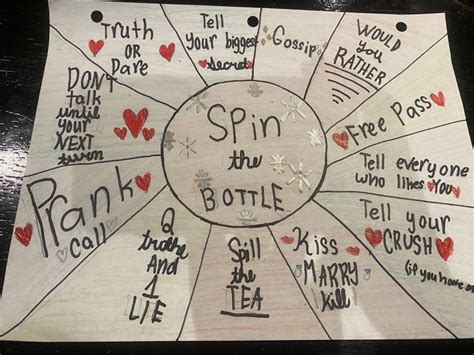 Truth
OR
Dare
Tell
Your biggest
secret
Gossip
WOULD
You
RATHER
Free Pass
Tell everyone
who likes You
Tell your
CRUSH
(if you have one
Kiss
MARRY
Kill
Spill
the
TEA
2
truths
And
1
LIE
Prank
call
DON'T
talk
until
Your
NEXT
turn
SPin
the
BOTTLE